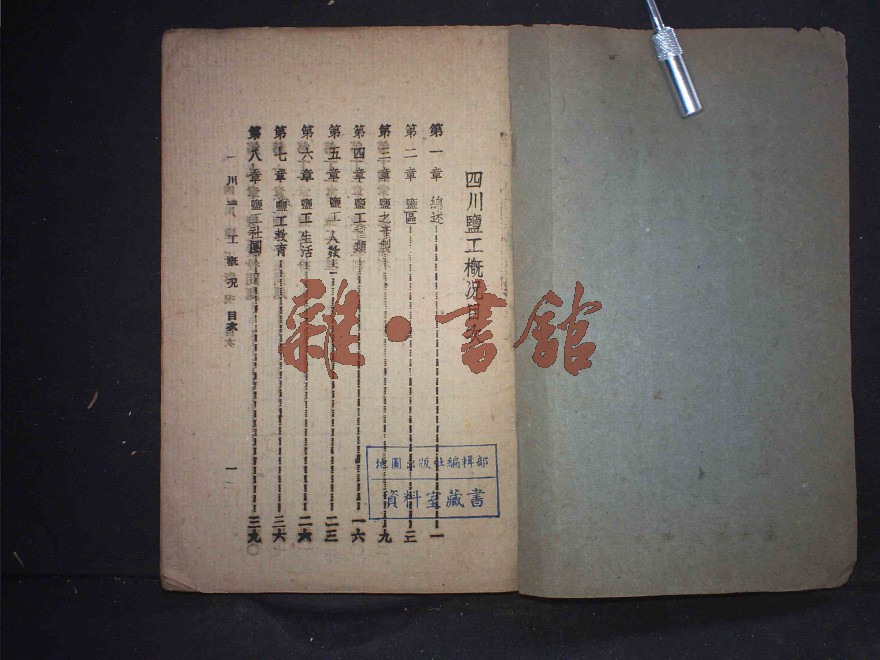 四川鹽工概況目次
第一章 總述 一
第二章 鹽區 三
第三章 鹽之產製 九
第四章 鹽工種類 一六
第五章 鹽工人數 二三
第六章 鹽工生活 二六
第七章 鹽工教育 三六
第八章 鹽工社團 三九
川鹽工概況 目次 一
地圖出版社編輯部
資料室藏書
雜·書館